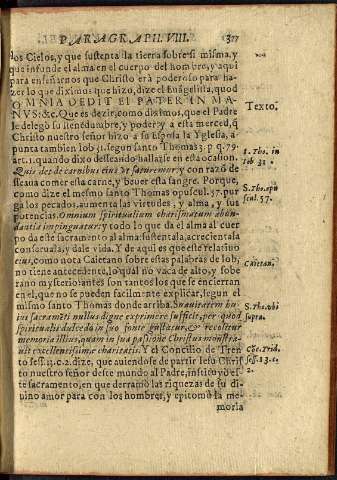 PARAGRAPH. VIII. 37
los Cielos, y que sustenta la tierra sobre si misma, y
que infunde el alma en el cuerpo del hombre, y aqui
para enseñarnos que Christo erà poderoso para ha
zer lo que diximos que hizo, dize el Euangelista, quod
OMNIA DEDIT EI PATER IN MA
NVS: &c. Que es dezir, como diximos, que el Padre
le delegò su sciencia, y poder: y a esta merced, q̃
Christo nuestro señor hizo a su Esposa la Yglesia, a
punta tambien Iob 31. segun santo Thomas 3. p. q. 79
art. 1. quando dixo desseando hallarse en esta ocasion.
Quis det de carnibus eius vt saturemur y con razõ de
sseaua comer esta carne, y beuer esta sangre. Porque,
como dize el mesmo santo Thomas opuscul. 57. pur
ga los pecados, aumenta las virtudes, y alma, y sus
potencias. Omnium spiritualium charismatum abun
dantia impinguatur: y todo lo que da el alma al cuer
po da este sacramento al alma, sustentala, acrecientala
conseruala, y dale vida. Y de aqui es que este relatiuo
eius, como nota Caietano sobre estas palabras de Iob,
no tiene antecedente, lo qual no vaca de alto, y sobe
rano mysterio: antes son tantos los que se encierran
en el, que no se pueden facilmente explicar, segun el
mismo santo Thomas donde arriba. Suauitatem hu
ius sacramẽti nullus digne exprimere sufficit, per quod
spiritualis dulcedo in suo fonte gustatur, & recolitur
memoria illius, quam in sua passione Christus monstra-
uit excellentissimæ charitatis. Y el Concilio de Tren
to sess. 13. c. 2. dize, que auiendose de partir Iesu Christ
to nuestro señor deste mundo al Padre, instituyò es-
te sacramento, en que derramò las riquezas de su di
uino amor para con los hombres, y epitomò la me
moria
Texto.
1. Tho. in
Iob 31
S. Tho. opu
scul. 57.
Caietan.
S. Tho. vbi
supra.
Cõc. Trid.
sess. 13. c.
2.